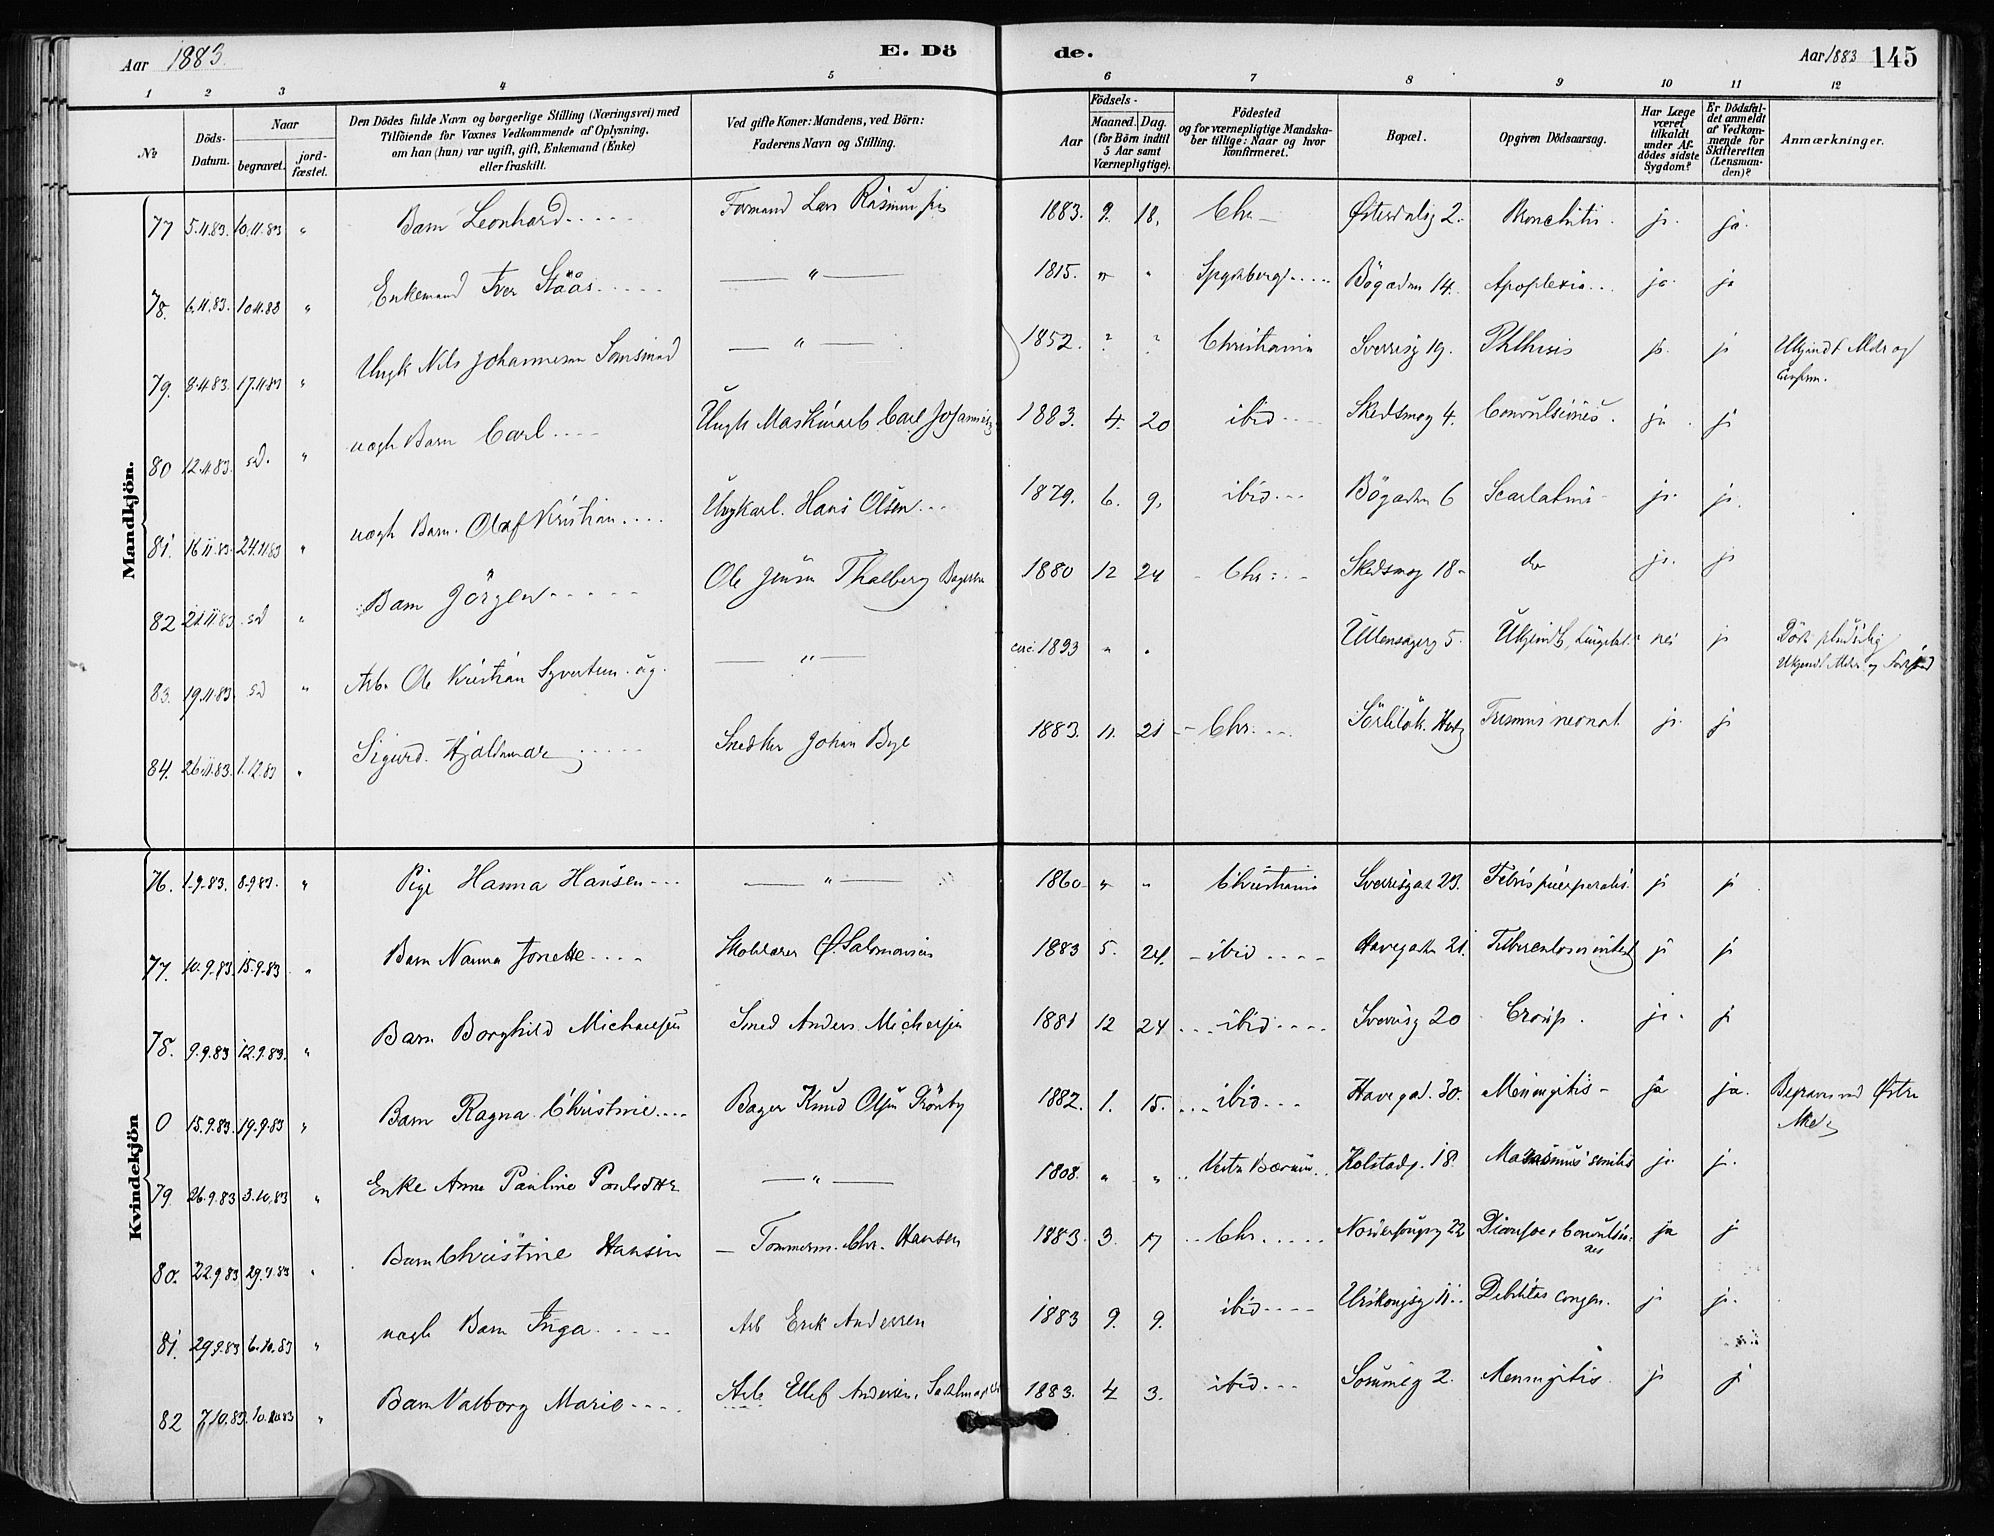 Aar 1883.
E. Dö
de.
Aar 1883 145
1 2 3 4 5 6 7 8 9 10 11 12
№
Döds-Datum.
Naar
begravet.
jord-fæstet.
Den Dödes fulde Navn og borgerlige Stilling (Næringsvei) med
Tilföiende for Voxnes Vedkommende af Oplysning,
om han (hun) var ugift, gift, Enkemand (Enke)
eller fraskilt.
Ved gifte Koner: Mandens, ved Börn:
Faderens Navn og Stilling.
Födsels-
Aar
Maaned. Dag.
(for Börn indtil
5 Aar samt
Værnepligtige).
Födested
og for værnepligtige Mandska-
ber tillige: Naar og hvor
konfirmeret.
Bopæl.
Opgiven Dödsaarsag.
Har Læge
været
tilkaldt
under Af-
dödes sidste
Sygdom?
Er Dödsfal-
det anmeldt
af Vedkom-
mende for
Skifteretten
(Lensman-
den)?
Anmærkninger.
Mandkjön.
77 5.11.83. 10.11.83 " Barn Leonhard Formand Lars 1883. 9. 18. Chr 2. Bronchitis. ja. ja.
78. 6.11.83. 10.11.83 " Enkemand Iver Stäås " 1815. " " Bögaden 14. Apoplexia ja ja
79. 8.11.83. 17.11.83 " Ungk Nils Johannesen " 1852. ? ? Christiania Sverrisg 19. Phthisis ja. ja Ukjendt
80 12.11.83. sd. " uægte Barn Carl Ungk Maskinarb Carl 1883. 4. 20 ibid Skedsmog 4. Convulsiones. ja ja
81. 16.11.83. 24.11.83 " uægte Barn. Olaf Kristian Ungkarl. Hans Olsen 1879. 6. 9. ibid Bögaden 6 Scarlatina ja. ja.
82 21.11.83 sd " Barn Jörgen Ole Jensen Thalberg 1880 12 24 Chr. Skedsmog 18 do ja. ja
83. 19.11.83 sd " Arb. Ole Kristian Syvertsen ug. " circ. 1833 " " Ullensagerg 5. Ukjendt, nei ja Död pludselig
Ukjendt
84. 26.11.83. 1.12.83 " Sigurd Hjaldmar Snedker Johan Bye 1883. 11. 21 Chr. Trismus neonat. ja. ja
Kvindekjön
76. 1.9.83. 8.9.83. " Pige Hanna Hansen " 1860 " " Christiania Sverrisgad 23. Febris puerperalis. ja ja
77. 10.9.83. 15.9.83 " Barn Nanna Jonette Ø. Salomonsen 1883 5. 24. ibid Havegaden 21. ja ja
78. 9.9.83 12.9.83. " Barn Borghild Michaelsen Smed Anders 1881 12 24 ibid Sverrisg 20 Croup. ja. ja
0 15.9.83. 19.9.83 " Barn Ragna Christine Bager Knud Olsen 1882. 1. 15. ibid Havegad. 30. Meningitis ja ja. Begraves ved Østre
Aker
79. 26.9.83 3.10.83 " Enke Anne Pauline Poulsdtr " 1808. " " Vestre Bærum Kolstadg. 18. Marasmus senilis ja. ja.
80. 22.9.83 29.9.83 " Barn Christine Hansen Tömmerm. Chr. Hansen 1883. 3. 17 Chr. 22 Convulsiones ja ja
81. 29.9.83 6.10.83 " uægte Barn Inga Arb Erik Andersen 1883 9. 9. ibid Urskougsg 11. Debilitas congen. ja ja.
82 7.10.83. 10.10.83 " Barn Valborg Marie Arb Ellef Andersen 1883. 4 3. ibid 2. Meningitis. ja ja